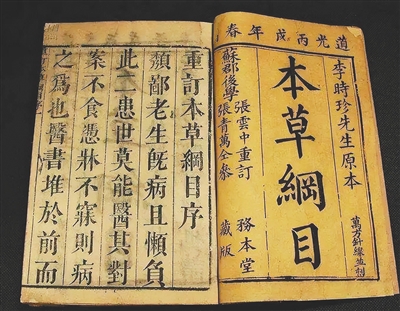 道光丙戌年春
李時珍先生原本
萬方針線並刻
本草綱目
蘇郡後學
張雲中重訂
張青萬仝參
務本堂藏版
重訂本草綱目序
鄙老生旣病且懶負
此二患世莫能醫其對
案不食憑牀不寐則病
之爲也醫書堆於前而